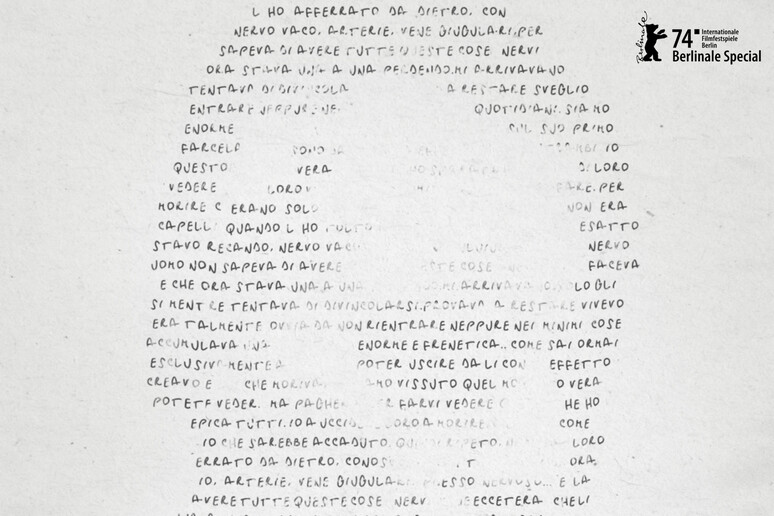 74 Internationale
Filmfestspiele
Berlin
Berlinale
Berlinale Special
L HO AFFERRATO DA DIETRO. CON
NERVO VACO. ARTERIE. VENE GIUGULARI. PER
SAPEVA DI AVERE TUTTE QUESTE COSE NERVI
ORA STAVA UNA A UNA PERDENDO. MI ARRIVAVANO
TENTAVA DI DIVINCOLA A RESTARE SVEGLIO
ENTRARE NEPPURE NE QUOTIDIANI. SIAMO
ENORME SUL SUO PRIMO
FARCELA SONO IO
QUESTO VERA DI LORO
VEDERE LORO PER
MORIRE C ERANO SOLO NON ERA
CAPELL QUANDO L HO ESATTO
STAVO RECANDO. NERVO VAC NERVO
UOMO NON SAPEVA DI AVERE STE COSE FACEVA
E CHE ORA STAVA UNA A UNA MI ARRIVAVANO. SOLO GLI
SI MENTRE TENTAVA DI DIVINCOLARSI. PROVAVO A RESTARE VIVEVO
ERA TALMENTE OVVIA DA NON RIENTRARE NEPPURE NEI MINIMI COSE
ACCUMULAVA UNA ENORME E FRENETICA.. COME SAI ORMAI
ESCLUSIVAMENTE A POTER USCIRE DA LI CON EFFETTO
CREAVO E CHE MORIVA AMO VISSUTO QUEL MO O VERA
POTETE VEDER. MA PAGHE R FARVI VEDERE C HE HO
EPICA TUTTI. IO A UCCID LORO A MORIRE COME
IO CHE SAREBBE ACCADUTO. QUI DI RIPETO. LORO
ERRATO DA DIETRO. CONOS T ORA.
IO. ARTERIE. VENE GIUGULARI ESSO NERVOSO... E LA
AVERE TUTTE QUESTE COSE NERV E ECCETERA CHE LI